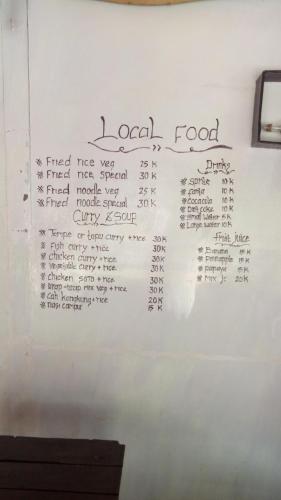 Local Food
Fried rice veg 25 K
Fried rice special 30 K
Fried noodle veg 25 K
Fried noodle special 30 K
Curry & soup
Tempe or tapu curry + rice 30 K
Fish curry + rice 30 K
chicken curry + rice 30 K
Vegetable curry + rice 30 K
chicken soto + rice 30 K
soup mix veg + rice 30 K
Cah kangkung + rice 20 K
nasi campur 15 K
Drinks
sprite 10 K
fanta 10 K
Cocacola 10 K
Diet coke 10 K
Small water 5 K
Large water 10 K
fruit Juice
Banana 15 K
Pineapple 15 K
papaya 15 K
Mix Jc 20 K